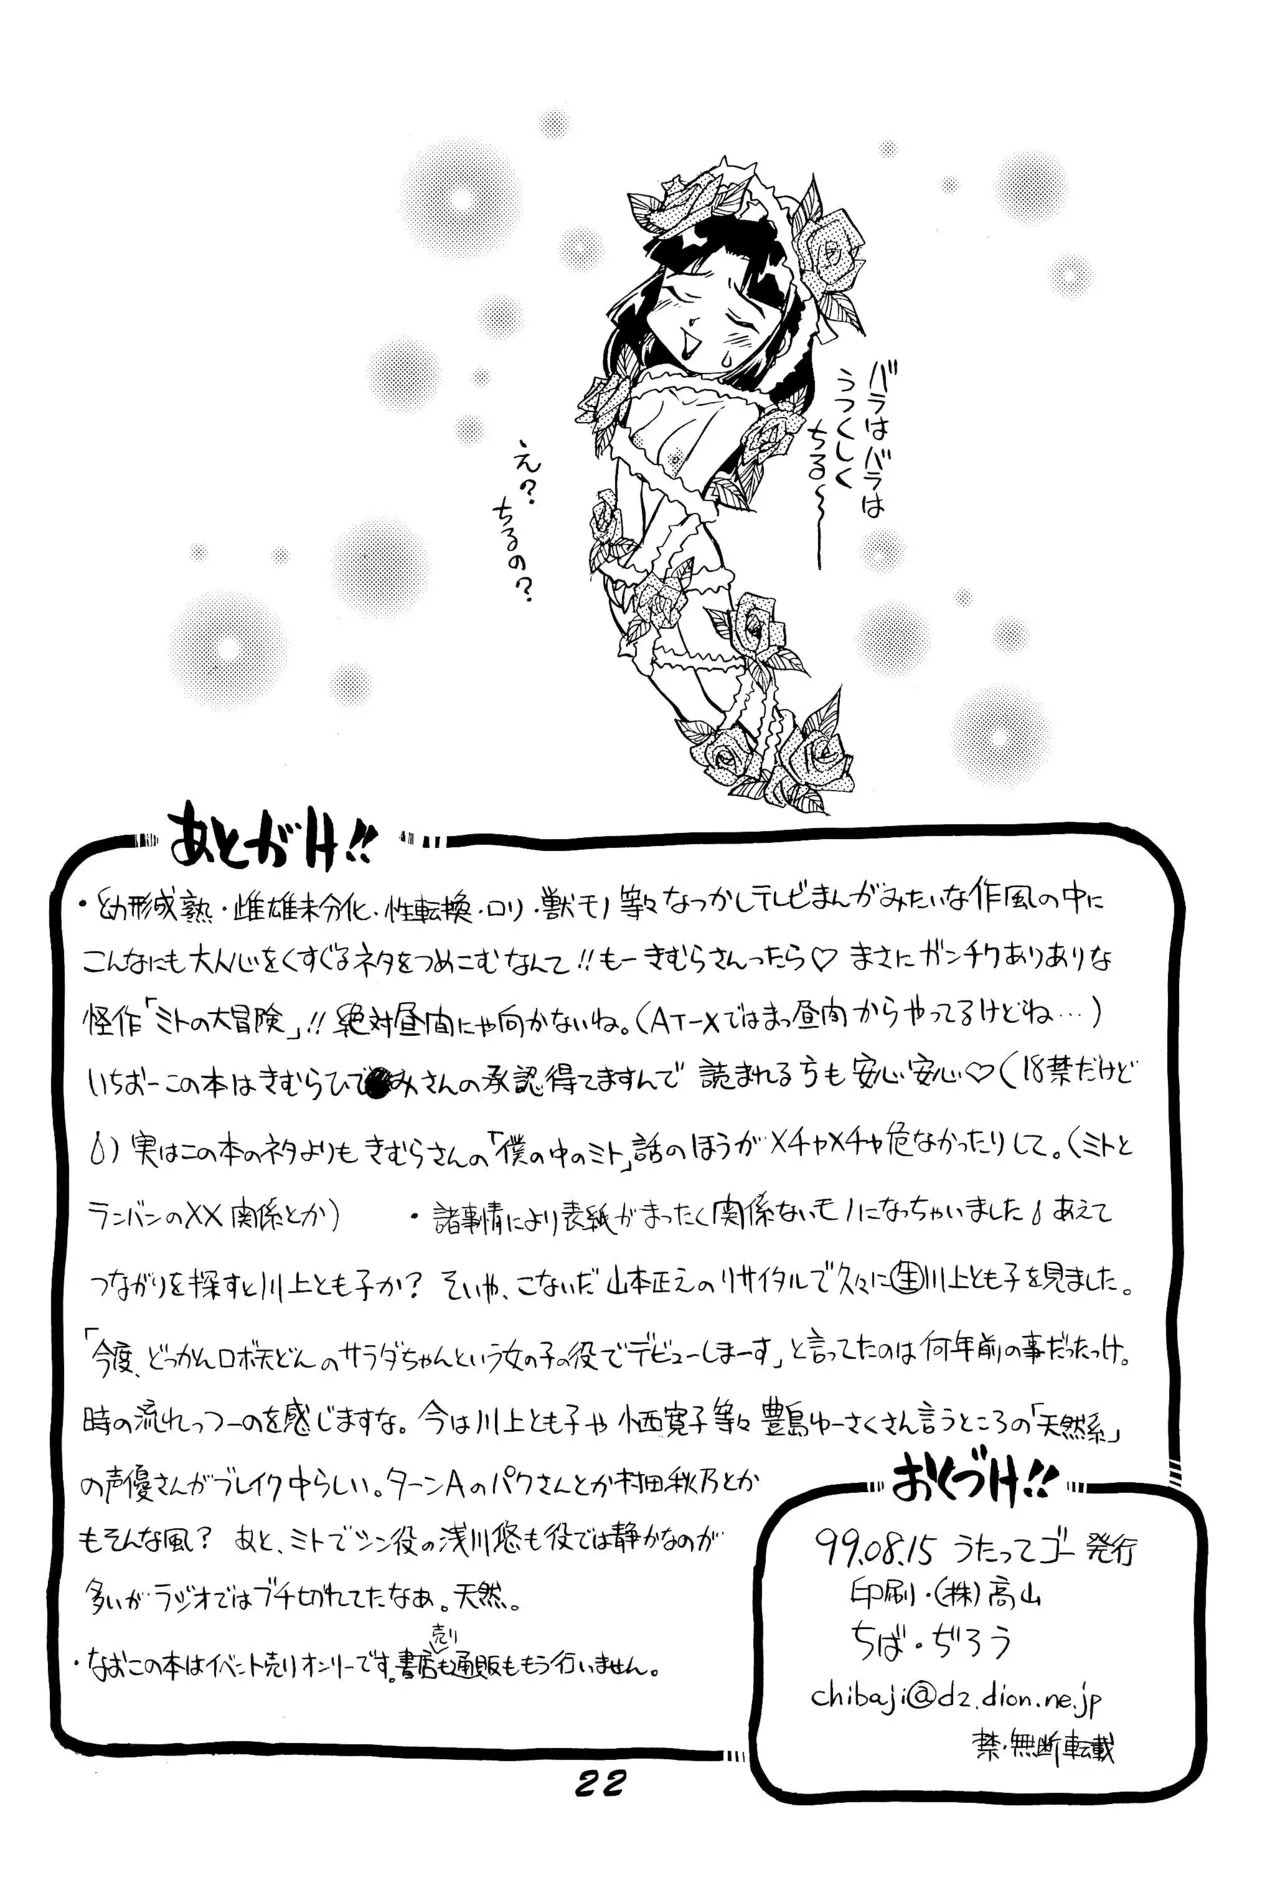 バラはバラは
うつくしく
ちる〜
え?
ちるの?
あとがけ!!
・幼形成熟・雌雄未分化・性転換・ロリ・獣モノ等々なつかしテレビまんがみたいな作風の中に
こんなにも大人心をくすぐるネタをつめこむなんて!!もーきむらさんったら♡まさにガンチクありありな
怪作「ミトの大冒険」!!絶対昼間にゃ向かないね。(AT-Xではまっ昼間からやってるけどね…)
いちおーこの本はきむらひでふみさんの承認得てますんで読まれる方も安心安心♡(18禁だけど
)実はこの本のネタよりもきむらさんの「僕の中のミト」話のほうがメチャメチャ危なかったりして。(ミトと
ランバンの××関係とか)
・諸事情により表紙がまったく関係ないモノになっちゃいましたあえて
つながりを探すと川上とも子か?そいや、こないだ山本正之のリサイタルで久々に生川上とも子を見ました。
「今度、どっかんロボ天どんのサラダちゃんという女の子の役でデビューしまーす」と言ってたのは何年前の事だったっけ。
時の流れっつーのを感じますな。今は川上とも子や小西寛子等々豊島ゆーさくさん言うところの「天然系」
の声優さんがブレイク中らしい。ターンAのパクさんとか村田秋乃とか
もそんな風?あと、ミトでシン役の浅川悠も役では静かなのが
多いがラジオではブチ切れてたなあ。天然。
・なおこの本はイベント売りオンリーです。書店売りも通販ももう行いません。
おくづけ!!
99.08.15 うたってゴー発行
印刷・(株)高山
ちば・ぢろう
chibaji@dz.dion.ne.jp
禁・無断転載
22